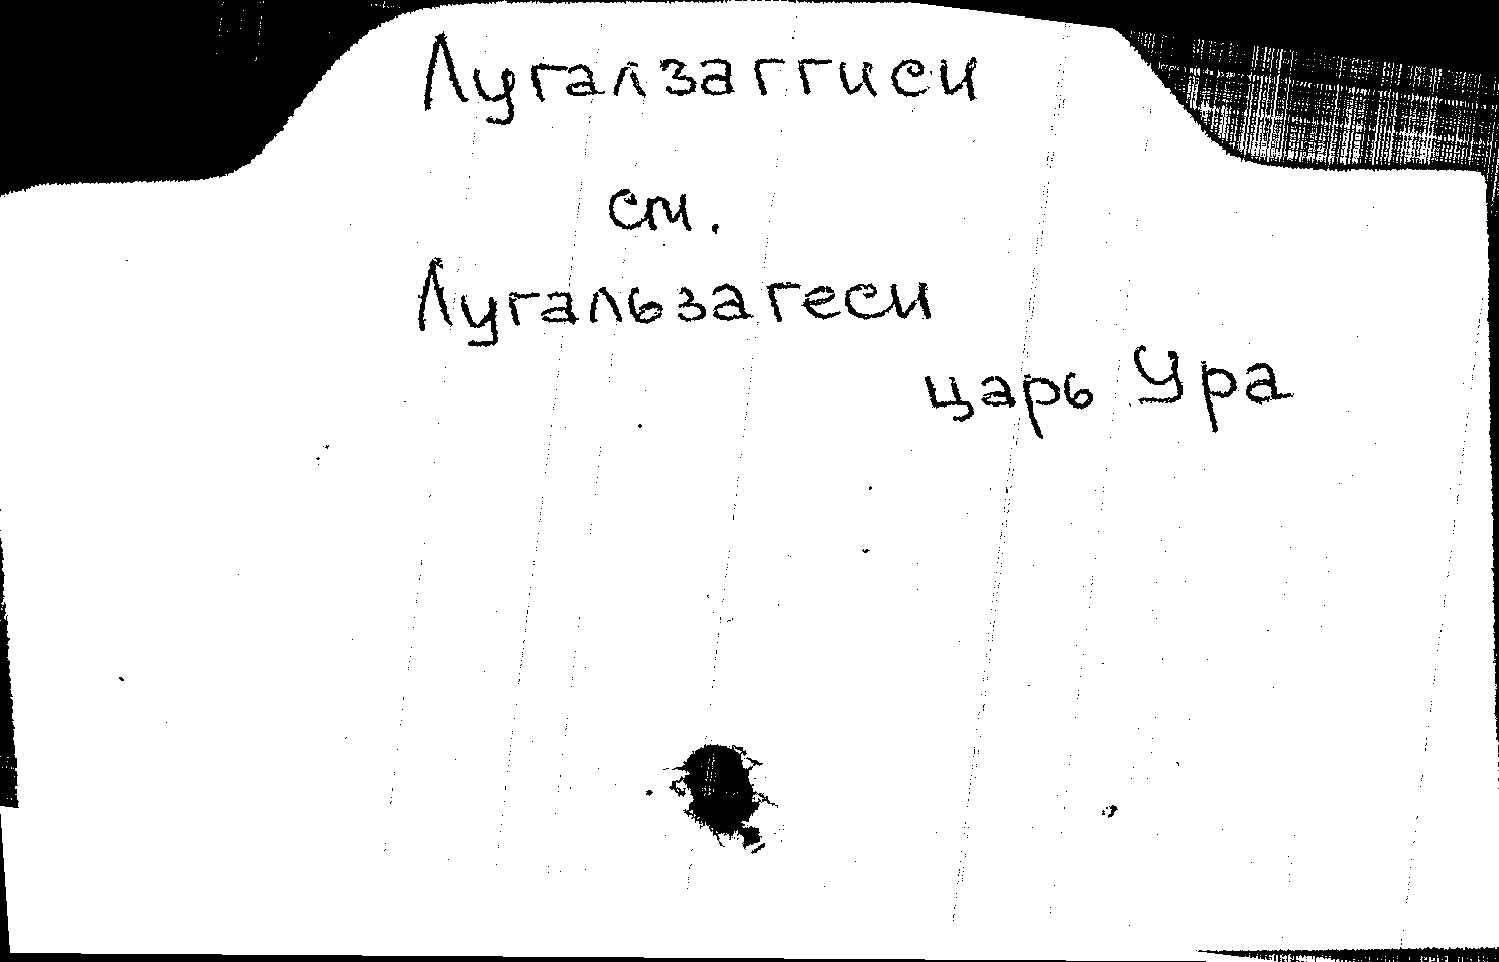 Лугалзаггиси
см.
Лугальзагеси
царь Ура